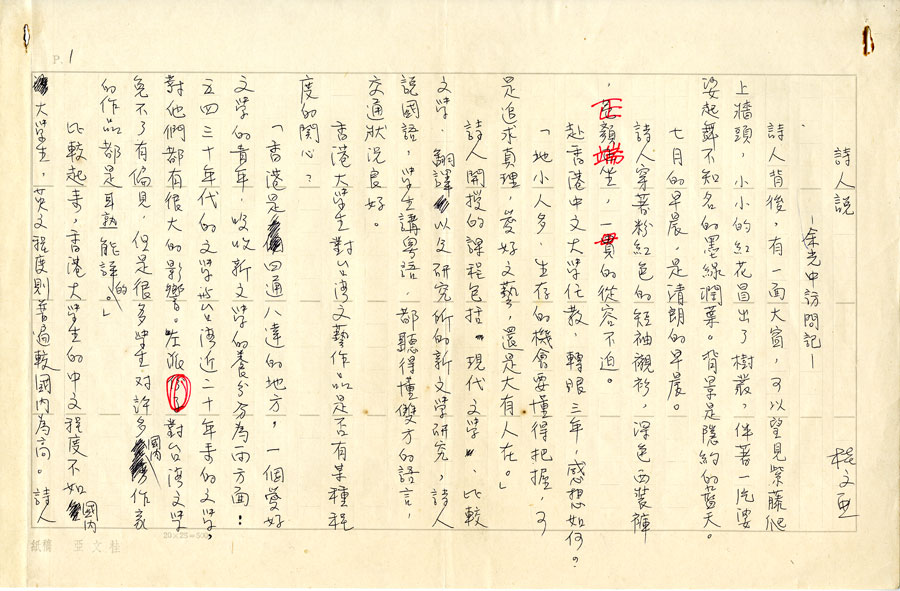 P. 1
詩人説
—余光中訪問記—
桂文亞
詩人背後，有一面大窗，可以望見紫藤爬
上牆頭，小小的紅花冒出了樹叢，伴著一片婆
娑起舞不知名的墨綠濶葉。背景是隱約的藍天。
七月的早晨，是清朗的早晨。
詩人穿著粉紅色的短袖襯衫，深色西裝褲
，正顏端坐，一貫的從容不迫。
赴香港中文大學任教，轉眼三年，感想如何。
「地小人多，生存的機會要懂得把握，可
是追求真理，愛好文藝，還是大有人在。」
詩人開授的課程包括「現代文學」、比較
文學、翻譯以及研究所的新文學研究，詩人
說國語，學生講粵語，都聽得懂雙方的語言，
交通狀況良好。
香港大學生對台湾文藝作品是否有某種程
度的関心？
「香港是四通八達的地方，一個愛好
文學的青年，吸收新文學的養分分為兩方面：
五四三十年代的文學部台湾近二十年来的文學，
對他們都有很大的影響。左派對台湾文學
免不了有偏見，但是很多學生对許多國内作家
的作品都是耳熟能詳的。」
比較起来，香港大學生的中文程度不如國内
大學生，英文程度則普遍較國内為高。詩人
20×25=500
桂文亞 稿紙